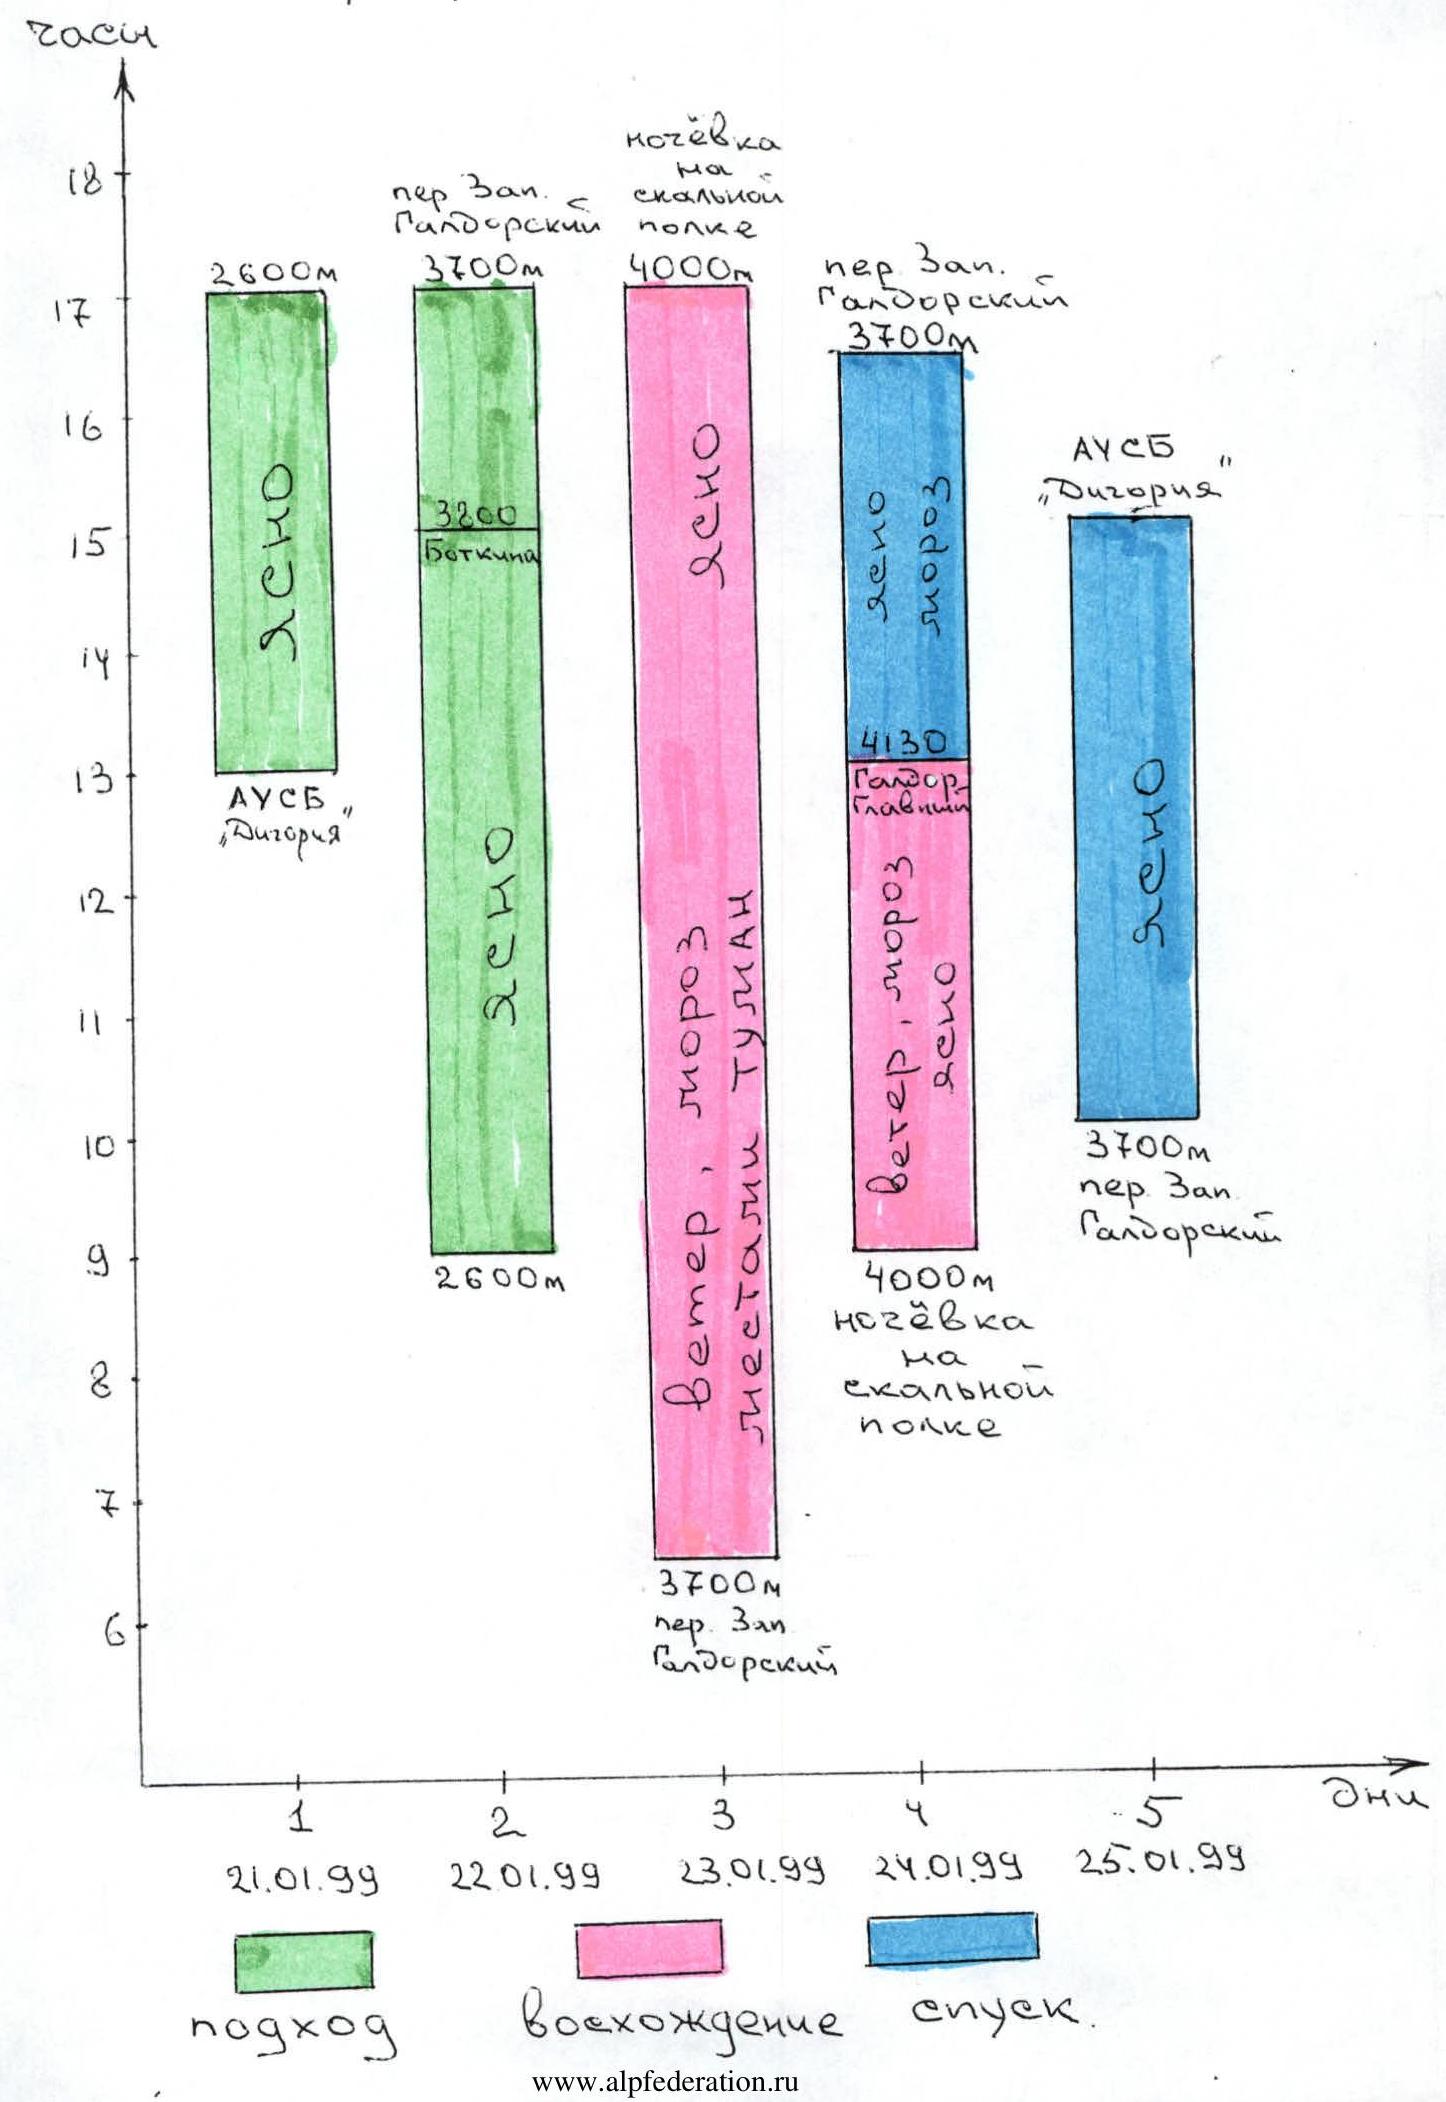 часы
18
17
16
15
14
13
12
11
10
9
8
7
6
2600м
ясно
АУСБ
„Дигория"
пер Зап.
Галдорский
3700м
3200
Боткина
ясно
2600м
ночёвка
на
скальной
полке
4000м
ясно
ветер, мороз
местами туман
3700м
пер. Зап
Галдорский
пер. Зап.
Галдорский
3700м
ясно
мороз
4130
Галдор
Главный
ветер, мороз
ясно
4000м
ночёвка
на
скальной
полке
АУСБ
„Дигория"
ясно
3700м
пер. Зап
Галдорский
1 2 3 4 5 дни
21.01.99 22.01.99 23.01.99 24.01.99 25.01.99
подход восхождение спуск.
www.alpfederation.ru